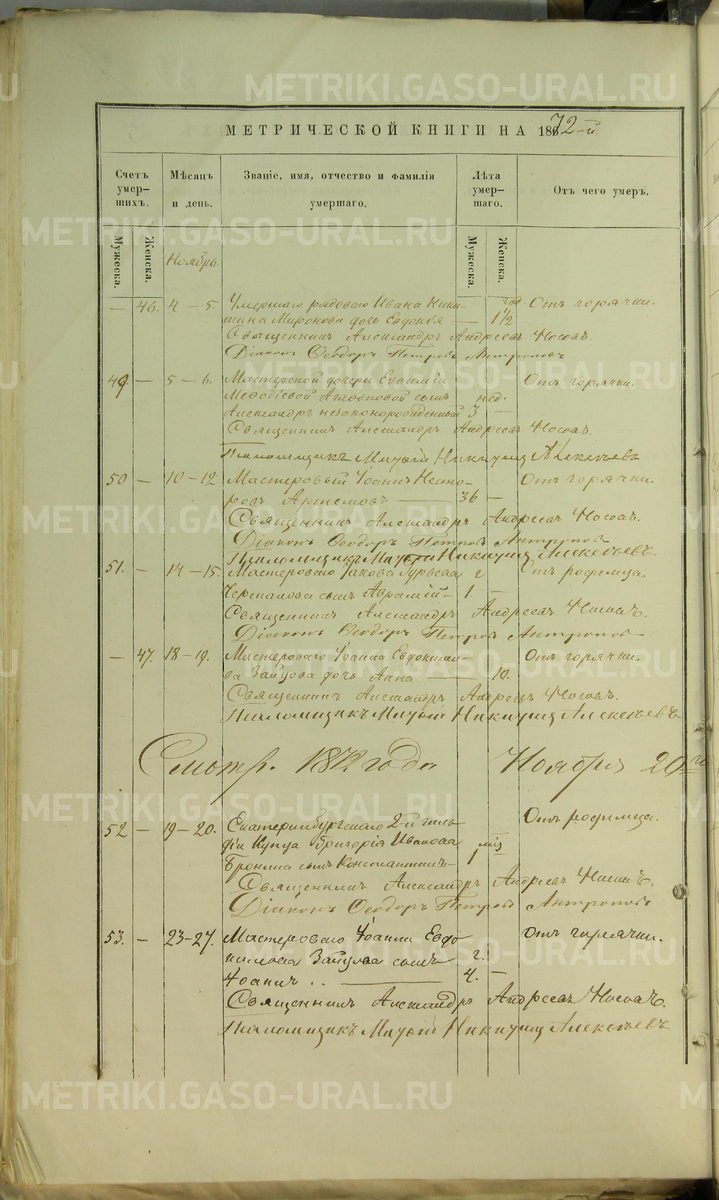 МЕТРИЧЕСКОЙ КНИГИ НА 1872-й
Счетъ умер-шихъ. Мѣсяцъ и день. Званіе, имя, отчество и фамилія умершаго. Лѣта умер-шаго. Отъ чего умеръ.
Мужеска. Женска. Мужеска. Женска.
Ноябрь
— 46. 4 — 5. Умершаго рядоваго Ивана Ники- год Отъ горячки.
тина Миронова дочь Евдокія — 1½
Священникъ Александръ Андреевъ Носовъ.
Діаконъ Ѳеодоръ Петровъ Антроповъ
49. — 5 — 6. Мастерской дочери Евфиміи Отъ горячки.
Меѳодіевой сынъ нед.
Александръ незаконорожденный 3 —
Священникъ Александръ Андреевъ Носовъ.
Псаломщикъ Никифоръ Алексѣевъ
50 — 10 — 12 Мастеровый Іоаннъ Несто- Отъ горячки.
ровъ Артемовъ — 36 —
Священникъ Александръ Андреевъ Носовъ.
Діаконъ Ѳеодоръ Петровъ Антроповъ
Псаломщикъ Никифоръ Алексѣевъ
51. — 14 — 15. Мастероваго Іакова Гурьева г Отъ родимца.
Черепанова сынъ Аврамій — 1 —
Священникъ Александръ Андреевъ Носовъ.
Діаконъ Ѳеодоръ Петровъ Антроповъ
— 47. 18 — 19. Мастероваго Іоанна Евдокимо- Отъ горячки.
ва Зайцова дочь Анна — 10.
Священникъ Александръ Андреевъ Носовъ.
Псаломщикъ Никифоръ Алексѣевъ
Смотр. 1872 года Ноября 20го
52 — 19 — 20. Екатеринбургскаго 2-й гиль- Отъ родимца.
діи Купца Григорія Иванова міз
сынъ Константинъ — 1
Священникъ Александръ Андреевъ Носовъ.
Діаконъ Ѳеодоръ Петровъ Антроповъ
53. — 23 — 27. Мастероваго Іоанна Евдо- Отъ горячки.
кимова Зайцова сынъ г.
Іоаннъ .. — 4. —
Священникъ Александръ Андреевъ Носовъ.
Псаломщикъ Никифоръ Алексѣевъ
METRIKI.GASO-URAL.RU